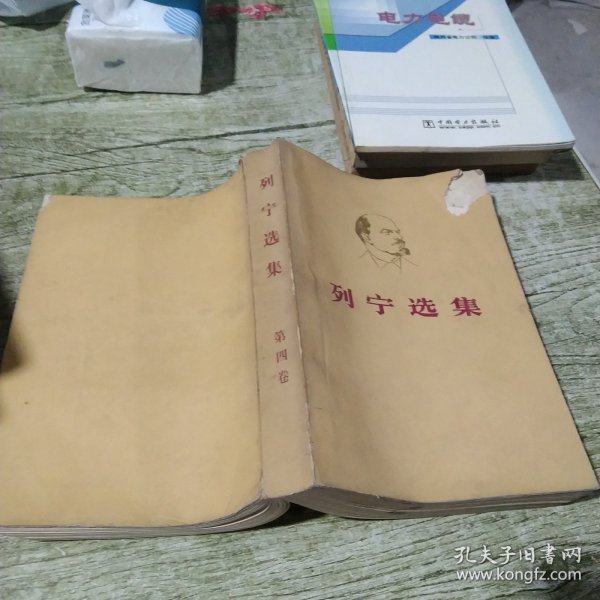 电力电缆
中国电力出版社
列宁选集
第四卷
列宁选集
孔夫子旧书网
www.kongfz.com